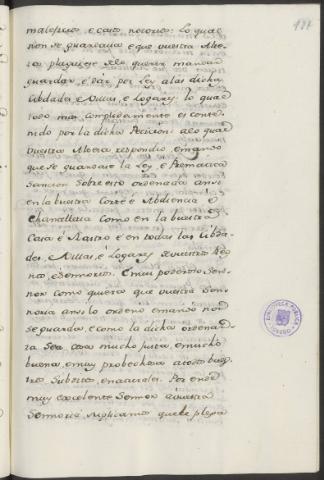 197
maleficio, e caso notorio: lo qual
non se guardava e que vuestra Alte-
za pluguiese de lo querer mandar
guardar, e dár por Ley a las dichas
Cibdades, e Villas, e Logares, lo qual
todo mas complidamente es conte-
nido por la dicha Peticion. a lo qual
vuestra Alteza respondio, e mando
que se guardase la Ley, e Prematica
Sancion sobre esto ordenada ansi
en la vuestra Corte e Abdiencia é
Chancilleria como en la vuestra
Casa é Rastro é en todas las Cibda-
des, e Villas é Logares de vuestros Reg-
nos, é Sennorios. E muy poderoso Sen-
nor como quiera que vuestra Sen-
noria ansi lo ordeno é mando non
se guarda, e como la dicha ordenan-
za sea cosa mucho justa, e mucho
buena, e muy probechosa a todos vues-
tros Subditos, e naturales. Por ende
muy excelente Sennor a vuestra
Sennoria suplicamos que le plega
BIBLIOTECA PUBLICA
TOLEDO